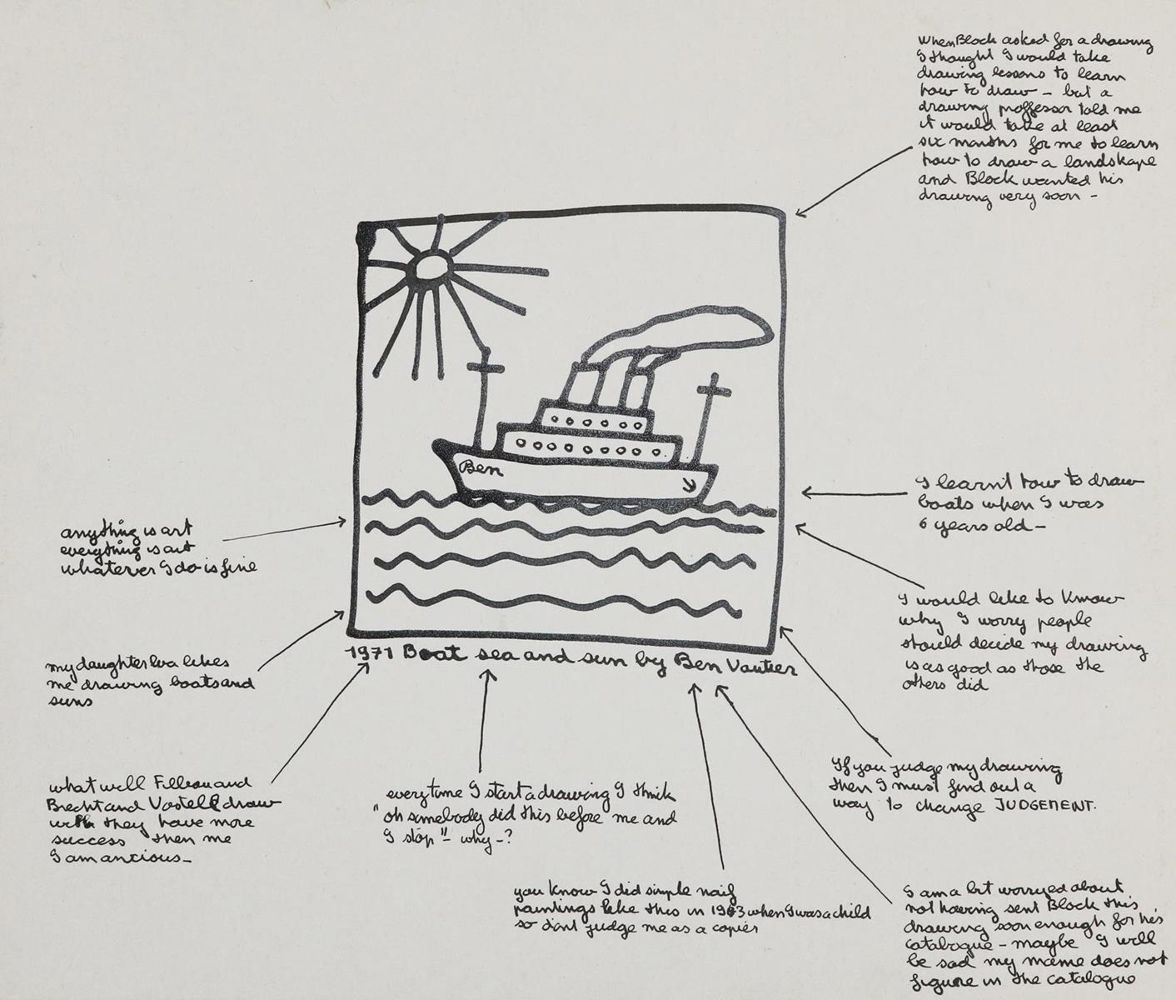 when Block asked for a drawing
I thought I would take
drawing lessons to learn
how to draw – but a
drawing proffessor told me
it would take at least
six months for me to learn
how to draw a landskape
and Block wanted his
drawing very soon –
Ben
I learnt how to draw
boats when I was
6 years old –
anything is art
everything is art
whatever I do is fine
I would like to know
why I worry people
should decide my drawing
is as good as those the
others did
my daughter Eva likes
me drawing boats and
suns
1971 Boat sea and sun by Ben Vautier
If you judge my drawing
then I must find out a
way to change JUDGEMENT.
what will Filliou and
Brecht and Vostell draw
will they have more
success then me
I am ancious –
everytime I start a drawing I think
"oh somebody did this before me and
I stop" – why – ?
you know I did simple naif
paintings like this in 1963 when I was a child
so dont judge me as a copier
I am a bit worryed about
not having sent Block this
drawing soon enough for his
catalogue – maybe I will
be sad my name does not
figure in the catalogue